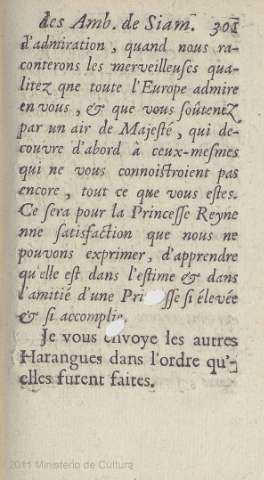 des Amb. de Siam. 301
d'admiration, quand nous ra-
conterons les merveilleuses qua-
litez que toute l'Europe admire
en vous, & que vous soûtenez
par un air de Majesté, qui dé-
couvre d'abord à ceux-mesmes
qui ne vous connoistroient pas
encore, tout ce que vous estes.
Ce sera pour la Princesse Reyne
nne satisfaction que nous ne
pouvons exprimer, d'apprendre
qu'elle est dans l'estime & dans
l'amitié d'une Pri sse si élevée
& si accomplie.
Je vous envoye les autres
Harangues dans l'ordre qu'-
elles furent faites.
2011 Ministerio de Cultura